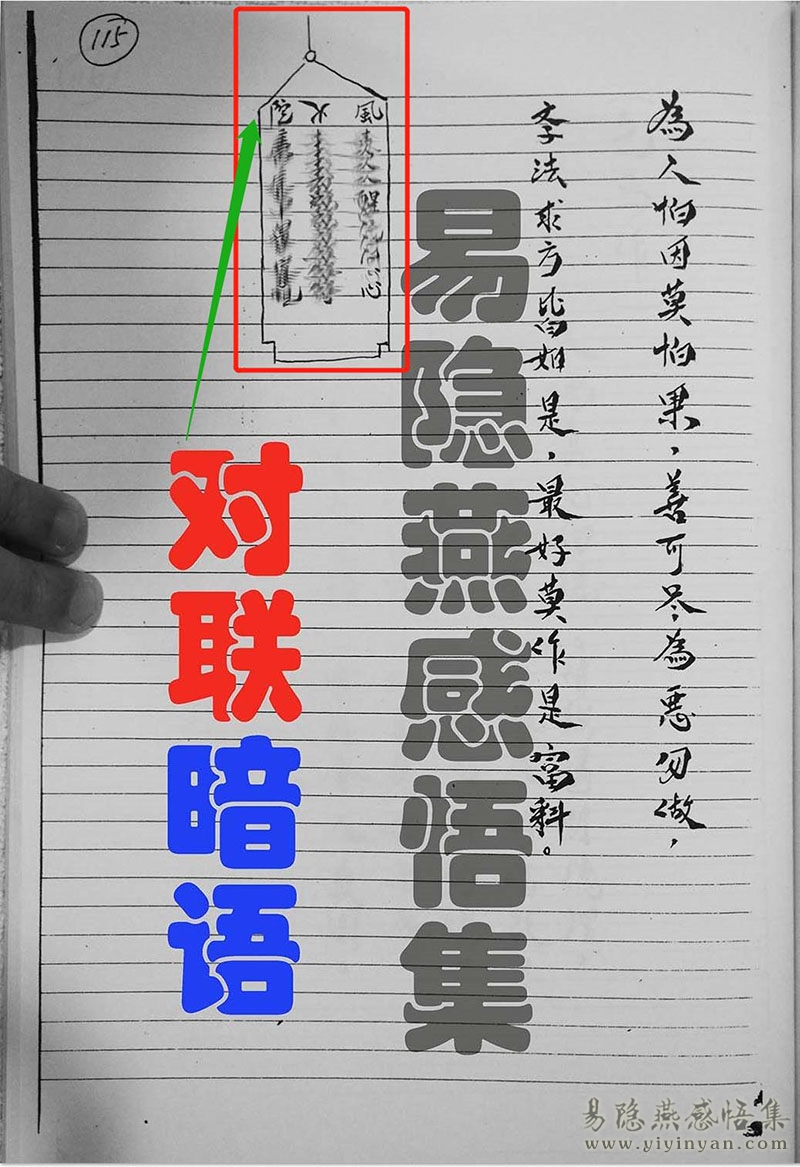 115
為人怕因莫怕果，善可尽為悪勿做，
斈法求方皆如是，最好莫作是富科。
風
火
易隐燕感悟集
对联
暗语
易隐燕感悟集
www.yiyinyan.com